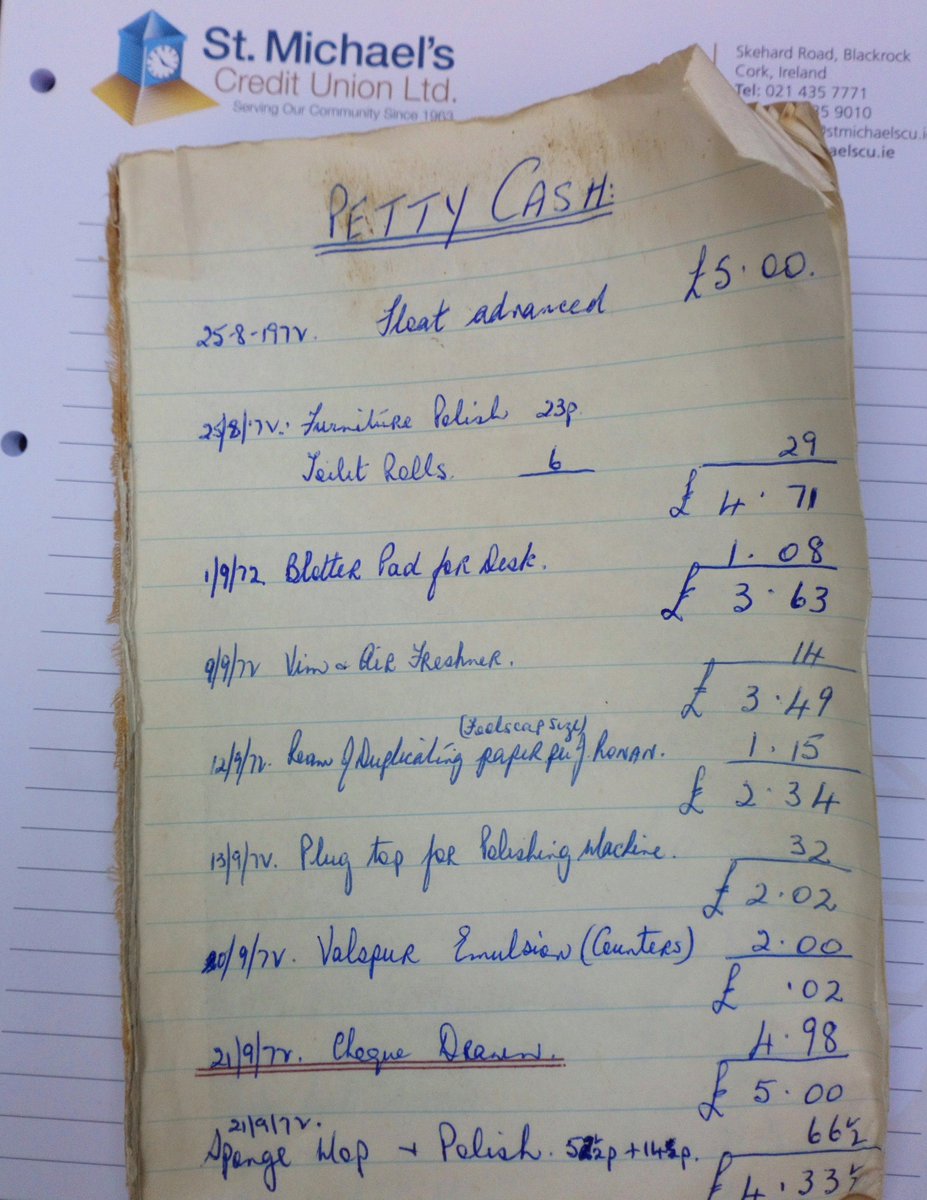 St. Michael's
Credit Union Ltd.
Serving Our Community Since 1963
Skehard Road, Blackrock
Cork, Ireland
Tel: 021 435 7771
35 9010
@stmichaelscu.ie
aelscu.ie
PETTY CASH:
25-8-1972. Float advanced £5.00.
25/8/72. Furniture Polish 23p.
Toilet Rolls. 6 29
£ 4.71
1/9/72 Blotter Pad for Desk. 1.08
£ 3.63
9/9/72 Vim & Air Freshner. 14
£ 3.49
(Foolscap size)
12/9/72. Ream of Duplicating paper per J. Ronan. 1.15
£ 2.34
13/9/72. Plug top for Polishing Machine. 32
£ 2.02
20/9/72. Valspur Emulsion (Counters) 2.00
£ .02
21/9/72. Cheque Drawn. 4.98
£ 5.00
21/9/72.
Sponge Mop + Polish. 52p + 14½p. 66½
£ 4.33½